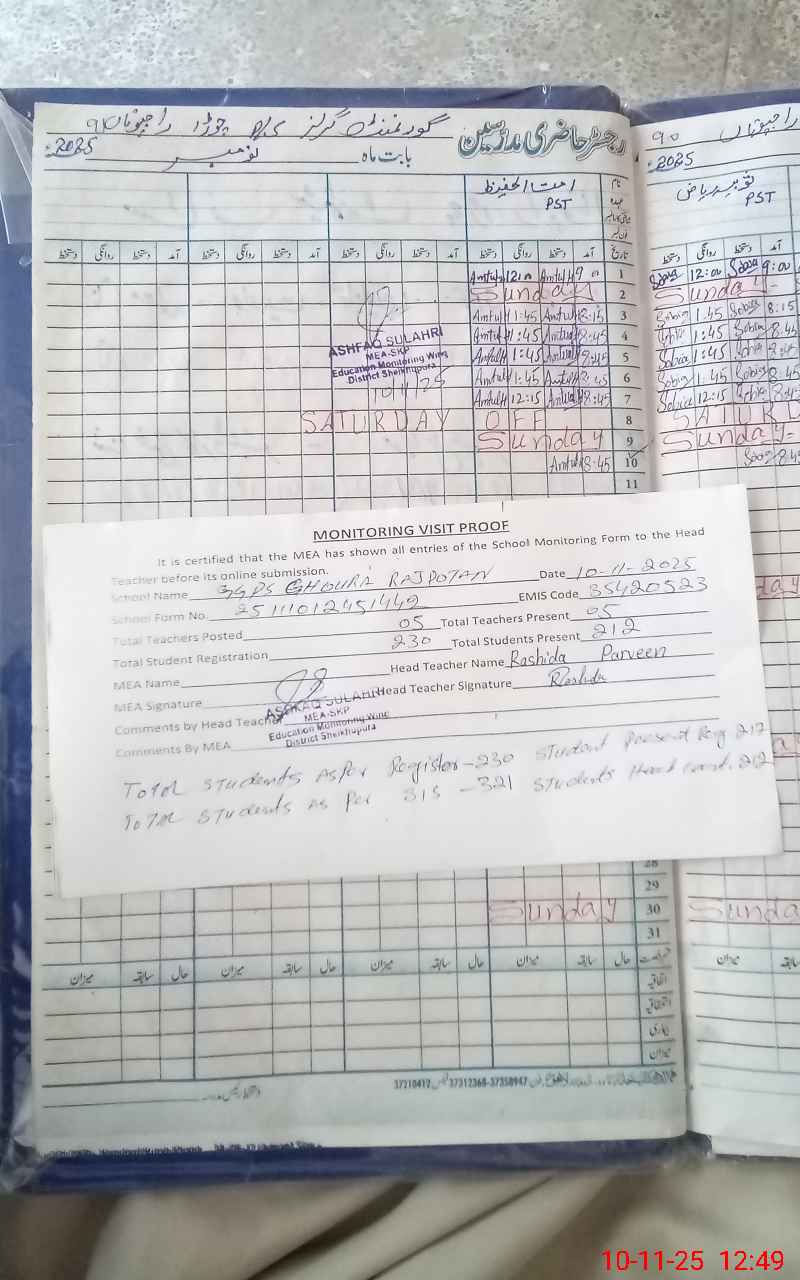 گورنمنٹ گرلز P/S چوڑا راجپوتاں
رجسٹر حاضری مدرسین
بابت ماہ نومبر 2025
امت الحفیظ
PST
نام
عہدہ
تاریخ آمد دستخط روانگی دستخط آمد دستخط روانگی دستخط آمد دستخط روانگی دستخط
1 9 Amtul H 12:00 Amtul
2 Sunday
3 8:15 Amtul H 1:45 Amtul H
4 8:45 Amtul H 1:45 Amtul H
5 8:45 Amtul H 1:45 Amtul H
6 8:45 Amtul H 1:45 Amtul H
7 8:45 Amtul H 12:15 Amtul H
8 SATURDAY OFF
9 Sunday
10 8:45 Amtul H
11
ASHFAQ SULAHRI
MEA-SKP
Education Monitoring Wing
District Sheikhupura
10/11/25
راجپوتاں 90
2025
ثوبیہ ریاض
PST
آمد دستخط روانگی دستخط
9:00 Sobia 12:00 Sobia
Sunday
8:15 Sobia 1:45 Sobia
8:45 Sobia 1:45 Sobia
8:45 Sobia 1:45 Sobia
8:45 Sobia 1:45 Sobia
8:45 Sobia 12:15 Sobia
SATURD
Sunday
8:45 Sobia
MONITORING VISIT PROOF
It is certified that the MEA has shown all entries of the School Monitoring Form to the Head
Teacher before its online submission.
School Name GGPS GHOURA RAJPOTAN Date 10-11-2025
School Form No. 25111012451449 EMIS Code 35420523
Total Teachers Posted 05 Total Teachers Present 05
Total Student Registration 230 Total Students Present 212
MEA Name Head Teacher Name Rashida Parveen
MEA Signature Head Teacher Signature Rashida
Comments by Head Teacher
Comments By MEA
ASHFAQ SULAHRI
MEA-SKP
Education Monitoring Wing
District Sheikhupura
Total Students As Per Register-230 Student Present Reg 212
Total Students as Per SIS -321 Students Head count. 212
28
29
30 Sunday
31
Sunday
حال سابقہ میزان حال سابقہ میزان حال سابقہ میزان حال سابقہ میزان
اتفاقیہ
بیماری
میزان
37310417 37312368-37358947
10-11-25 12:49